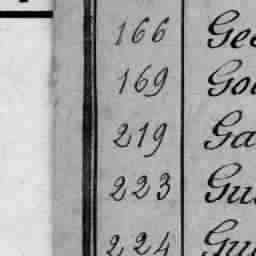 166 Ge
169 Go
219 Ga
223 Gu
224 Gu